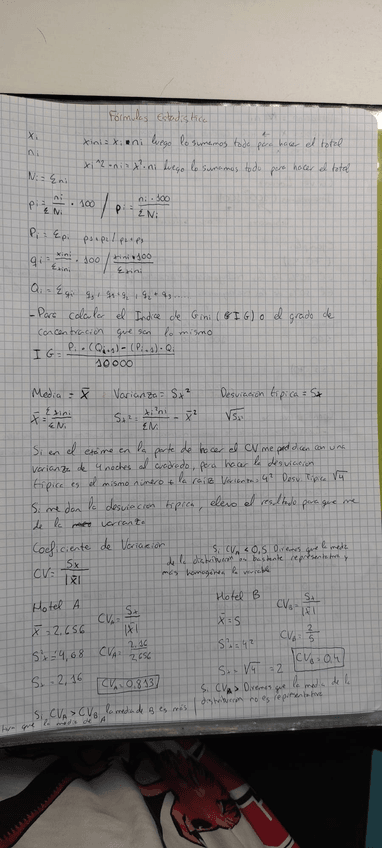 Formulas Estadística
xi
xini = xi · ni luego lo sumamos todo para hacer el total
ni
xi^2 · ni = x²·ni luego lo sumamos todo para hacer el total
Ni = Σni
pi = ni/ΣNi · 100 / pi = ni·100/ΣNi
Pi = Σpi p1+p2 / p2+p3
qi = xini/Σxini · 100 / xini·100/Σxini
Qi = Σqi
- Para calcular el Indice de Gini (IG) o el grado de
concentración que son lo mismo
IG = Pi · (Qi+1) - (Pi+1) · Qi / 10000
Media = x̄ Varianza = Sx² Desviación típica = Sx
x̄ = Σxini/ΣNi Sx² = xi²ni/ΣNi - x̄² √Sx
Si en el exáme en la parte de hacer el CV me dicen con una
varianza de 4 noches al cuadrado, para hacer la desviación
típica es el mismo número + la raíz Varianza = 4² Desv. Típica √4
Si me dan la desviación típica, elevo el resultado para que me
de la varianza
Coeficiente de Variación
CV = Sx/|x̄|
Si CVA < 0,5 Diremos que la media
de la distribución es bastante representativa y
más homogénea la variable
Hotel A
x̄ = 2,656
S²x = 4,68
Sx = 2,16
CVA = Sx/|x̄|
CVA = 2,16/2,656
CVA = 0,813
Hotel B
x̄ = 5
S²x = 4²
Sx = √4 = 2
CVB = Sx/|x̄|
CVB = 2/5
CVB = 0,4
Si CVA > Diremos que la media de la
distribución no es representativa
Si CVA > CVB la media de B es más
que la media de A